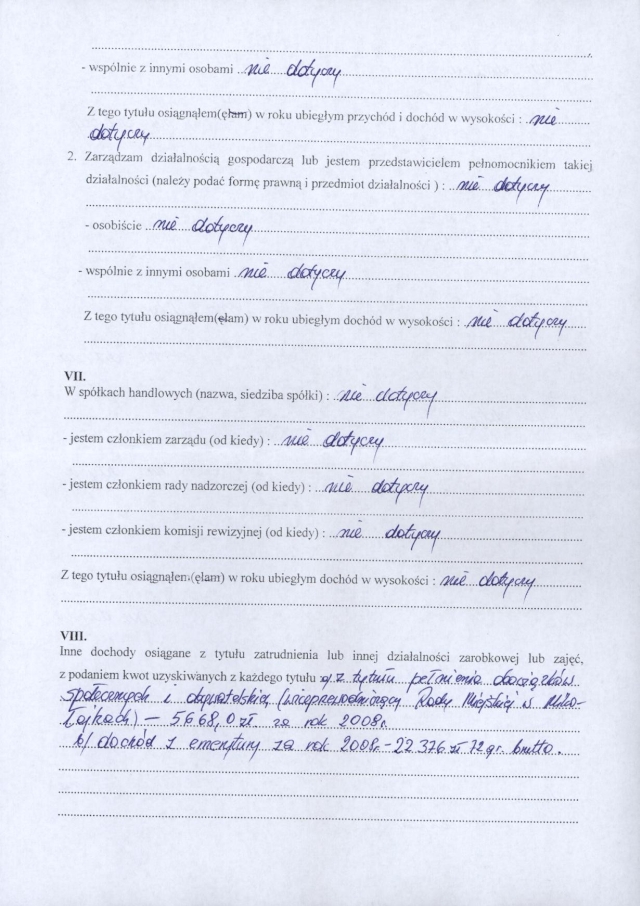 - wspólnie z innymi osobami nie dotyczy
Z tego tytułu osiągnąłem(ęłam) w roku ubiegłym przychód i dochód w wysokości : nie
dotyczy
2. Zarządzam działalnością gospodarczą lub jestem przedstawicielem pełnomocnikiem takiej
działalności (należy podać formę prawną i przedmiot działalności ) : nie dotyczy
- osobiście nie dotyczy
- wspólnie z innymi osobami nie dotyczy
Z tego tytułu osiągnąłem(ęłam) w roku ubiegłym dochód w wysokości : nie dotyczy
VII.
W spółkach handlowych (nazwa, siedziba spółki) : nie dotyczy
- jestem członkiem zarządu (od kiedy) : nie dotyczy
- jestem członkiem rady nadzorczej (od kiedy) : nie dotyczy
- jestem członkiem komisji rewizyjnej (od kiedy) : nie dotyczy
Z tego tytułu osiągnąłem(ęłam) w roku ubiegłym dochód w wysokości : nie dotyczy
VIII.
Inne dochody osiągane z tytułu zatrudnienia lub innej działalności zarobkowej lub zajęć,
z podaniem kwot uzyskiwanych z każdego tytułu a/ z tytułu pełnienia obowiązków
społecznych i obywatelskich (wiceprzewodniczący Rady Miejskiej w Miko-
łajkach) - 5668,0 zł za rok 2008r.
b/ dochód z emerytury za rok 2008r. - 22 376 zł 72 gr. brutto.